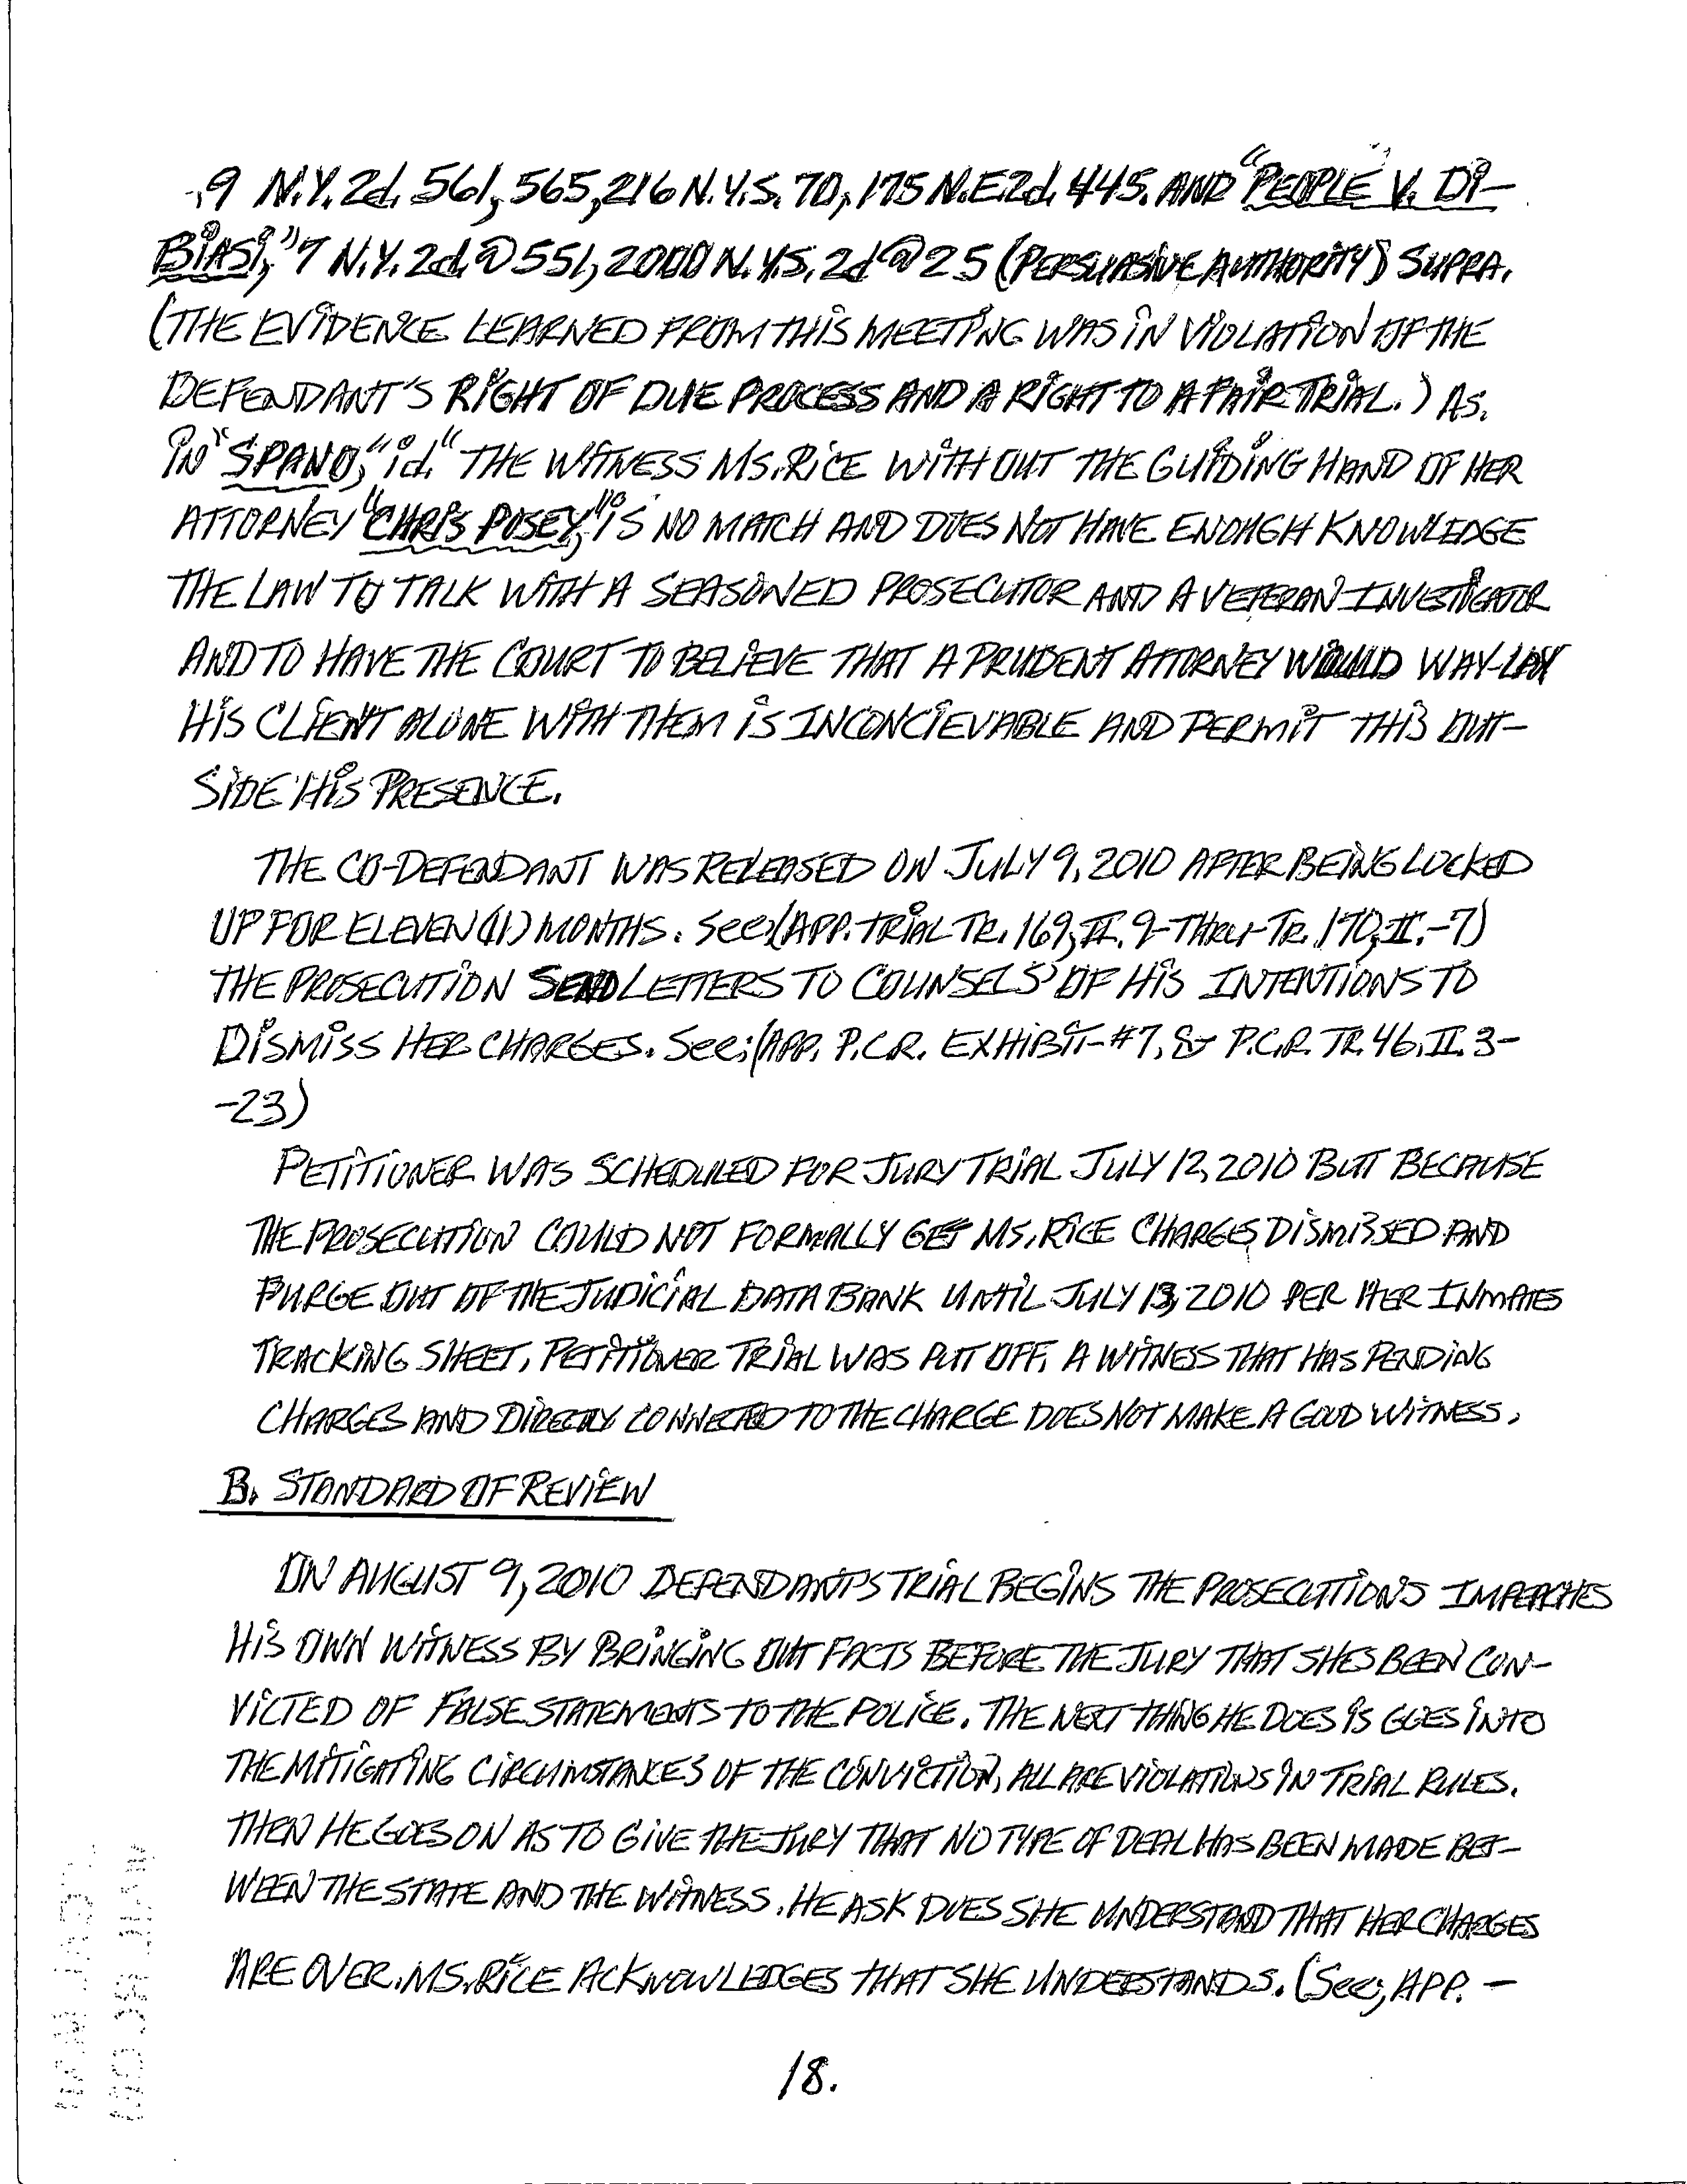 -,9 N.Y. 2d. 561, 565, 216 N.Y.S. 70, 175 N.E2d. 445. AND "PEOPLE V. DI-
BIASI," 7 N.Y. 2d. @ 551, 2000 N.Y.S. 2d @ 25 (PERSUASIVE AUTHORITY) SUPRA.
(THE EVIDENCE LEARNED FROM THIS MEETING WAS IN VIOLATION OF THE
DEFENDANT'S RIGHT OF DUE PROCESS AND A RIGHT TO A FAIR TRIAL.) AS.
IN "SPANO," id." THE WITNESS MS. RICE WITH OUT THE GUIDING HAND OF HER
ATTORNEY "CHRIS POSEY," IS NO MATCH AND DOES NOT HAVE ENOUGH KNOWLEDGE
THE LAW TO TALK WITH A SEASONED PROSECUTOR AND A VETERAN INVESTIGATOR
AND TO HAVE THE COURT TO BELIEVE THAT A PRUDENT ATTORNEY WOULD WAY-LAY
HIS CLIENT ALONE WITH THEM IS INCONCIEVABLE AND PERMIT THIS OUT-
SIDE HIS PRESENCE.
THE CO-DEFENDANT WAS RELEASED ON JULY 9, 2010 AFTER BEING LOCKED
UP FOR ELEVEN (11) MONTHS. See: (APP. TRIAL TR. 169, II. 9-THRU-TR. 170, II.-7)
THE PROSECUTION SEND LETTERS TO COUNSELS' OF HIS INTENTIONS TO
DISMISS HER CHARGES. See: (APP. P.C.R. EXHIBIT-#7, & P.C.R. TR. 46, II. 3-
-23)
PETITIONER WAS SCHEDULED FOR JURY TRIAL JULY 12, 2010 BUT BECAUSE
THE PROSECUTION COULD NOT FORMALLY GET MS. RICE CHARGES DISMISSED AND
PURGE OUT OF THE JUDICIAL DATA BANK UNTIL JULY 13, 2010 PER HER INMATES
TRACKING SHEET, PETITIONER TRIAL WAS PUT OFF. A WITNESS THAT HAS PENDING
CHARGES AND DIRECTLY CONNECTED TO THE CHARGE DOES NOT MAKE A GOOD WITNESS.
B. STANDARD OF REVIEW
ON AUGUST 9, 2010 DEFENDANT'S TRIAL BEGINS THE PROSECUTIONS IMPEACHES
HIS OWN WITNESS BY BRINGING OUT FACTS BEFORE THE JURY THAT SHES BEEN CON-
VICTED OF FALSE STATEMENTS TO THE POLICE. THE NEXT THING HE DOES IS GOES INTO
THE MITIGATING CIRCUMSTANCES OF THE CONVICTION, ALL ARE VIOLATIONS IN TRIAL RULES.
THEN HE GOES ON AS TO GIVE THE JURY THAT NO TYPE OF DEAL HAS BEEN MADE BET-
WEEN THE STATE AND THE WITNESS. HE ASK DOES SHE UNDERSTAND THAT HER CHARGES
ARE OVER. MS. RICE ACKNOWLEDGES THAT SHE UNDERSTANDS. (See; APP. -
18.